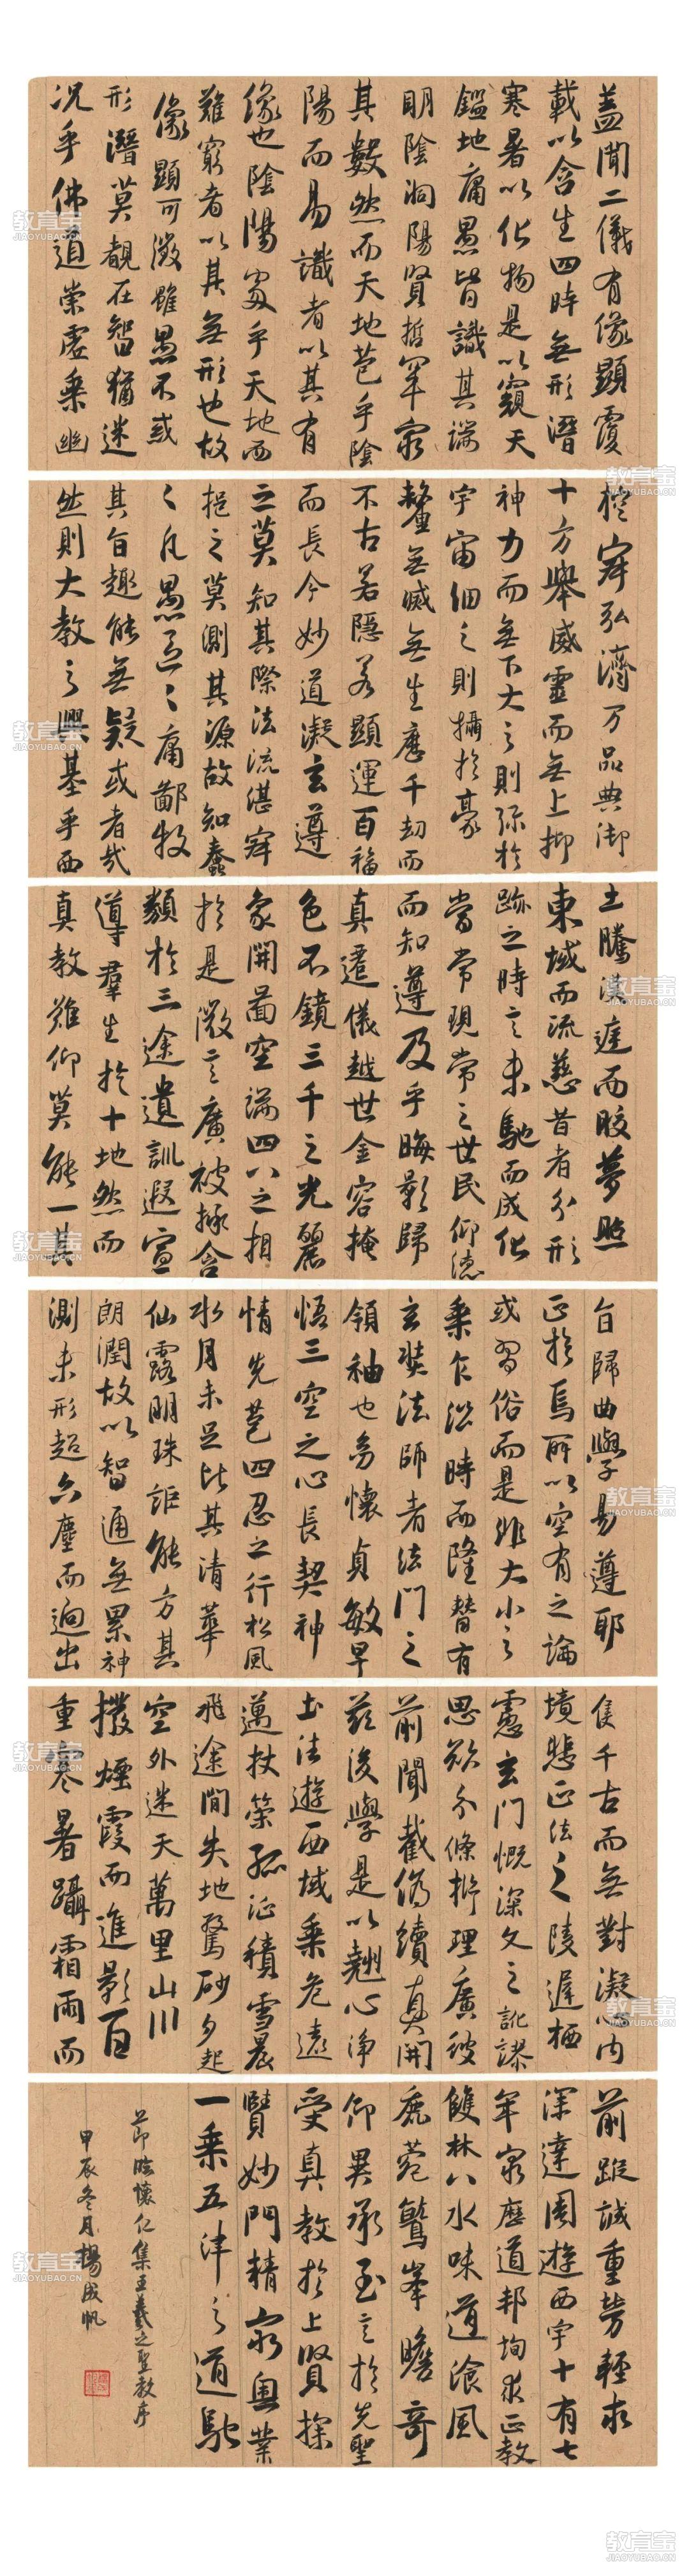 蓋聞二儀有像顯覆
載以含生四時無形潛
寒暑以化物是以窺天
鑑地庸愚皆識其端
明陰洞陽賢哲罕窮
其數然而天地苞乎陰
陽而易識者以其有
像也陰陽處乎天地而
難窮者以其無形也故
像顯可徵雖愚不惑
形潛莫覩在智猶迷
況乎佛道崇虛乘幽
控寂弘濟万品典御
十方舉威靈而無上抑
神力而無下大之則弥於
宇宙細之則攝於豪
釐無滅無生歷千劫而
不古若隱若顯運百福
而長今妙道凝玄遵
之莫知其際法流湛寂
挹之莫測其源故知蠢
〻凡愚區〻庸鄙投
其旨趣能無疑或者哉
然則大教之興基乎西
土騰漢庭而皎夢照
東域而流慈昔者分形
跡之時言未馳而成化
當常現常之世民仰德
而知遵及乎晦影歸
真遷儀越世金容掩
色不鏡三千之光麗
象開圖空端四八之相
於是微言廣被拯含
類於三途遺訓遐宣
導群生於十地然而
真教難仰莫能一其
旨歸曲學易遵耶
正於焉所以空有之論
或習俗而是非大小之
乘乍沿時而隆替有
玄奘法師者法門之
領袖也幼懷貞敏早
悟三空之心長契神
情先苞四忍之行松風
水月未足比其清華
仙露明珠詎能方其
朗潤故以智通無累神
測未形超六塵而迥出
隻千古而無對凝心內
境悲正法之陵遲栖
慮玄門慨深文之訛謬
思欲分條析理廣彼
前聞截偽續真開
茲後學是以翹心淨
土法遊西域乘危遠
邁杖策孤征積雪晨
飛途間失地驚砂夕起
空外迷天萬里山川
撥煙霞而進影百
重寒暑躡霜雨而
前蹤誠重勞輕求
深達周遊西宇十有七
年窮歷道邦詢求正教
雙林八水味道飡風
鹿菀鷲峯瞻奇
仰異承至言於先聖
受真教於上賢探
賾妙門精窮奧業
一乘五津之道馳
節臨懷仁集王羲之聖教序
甲辰冬月楊成帆
教育宝
JIAOYUBAO.CN